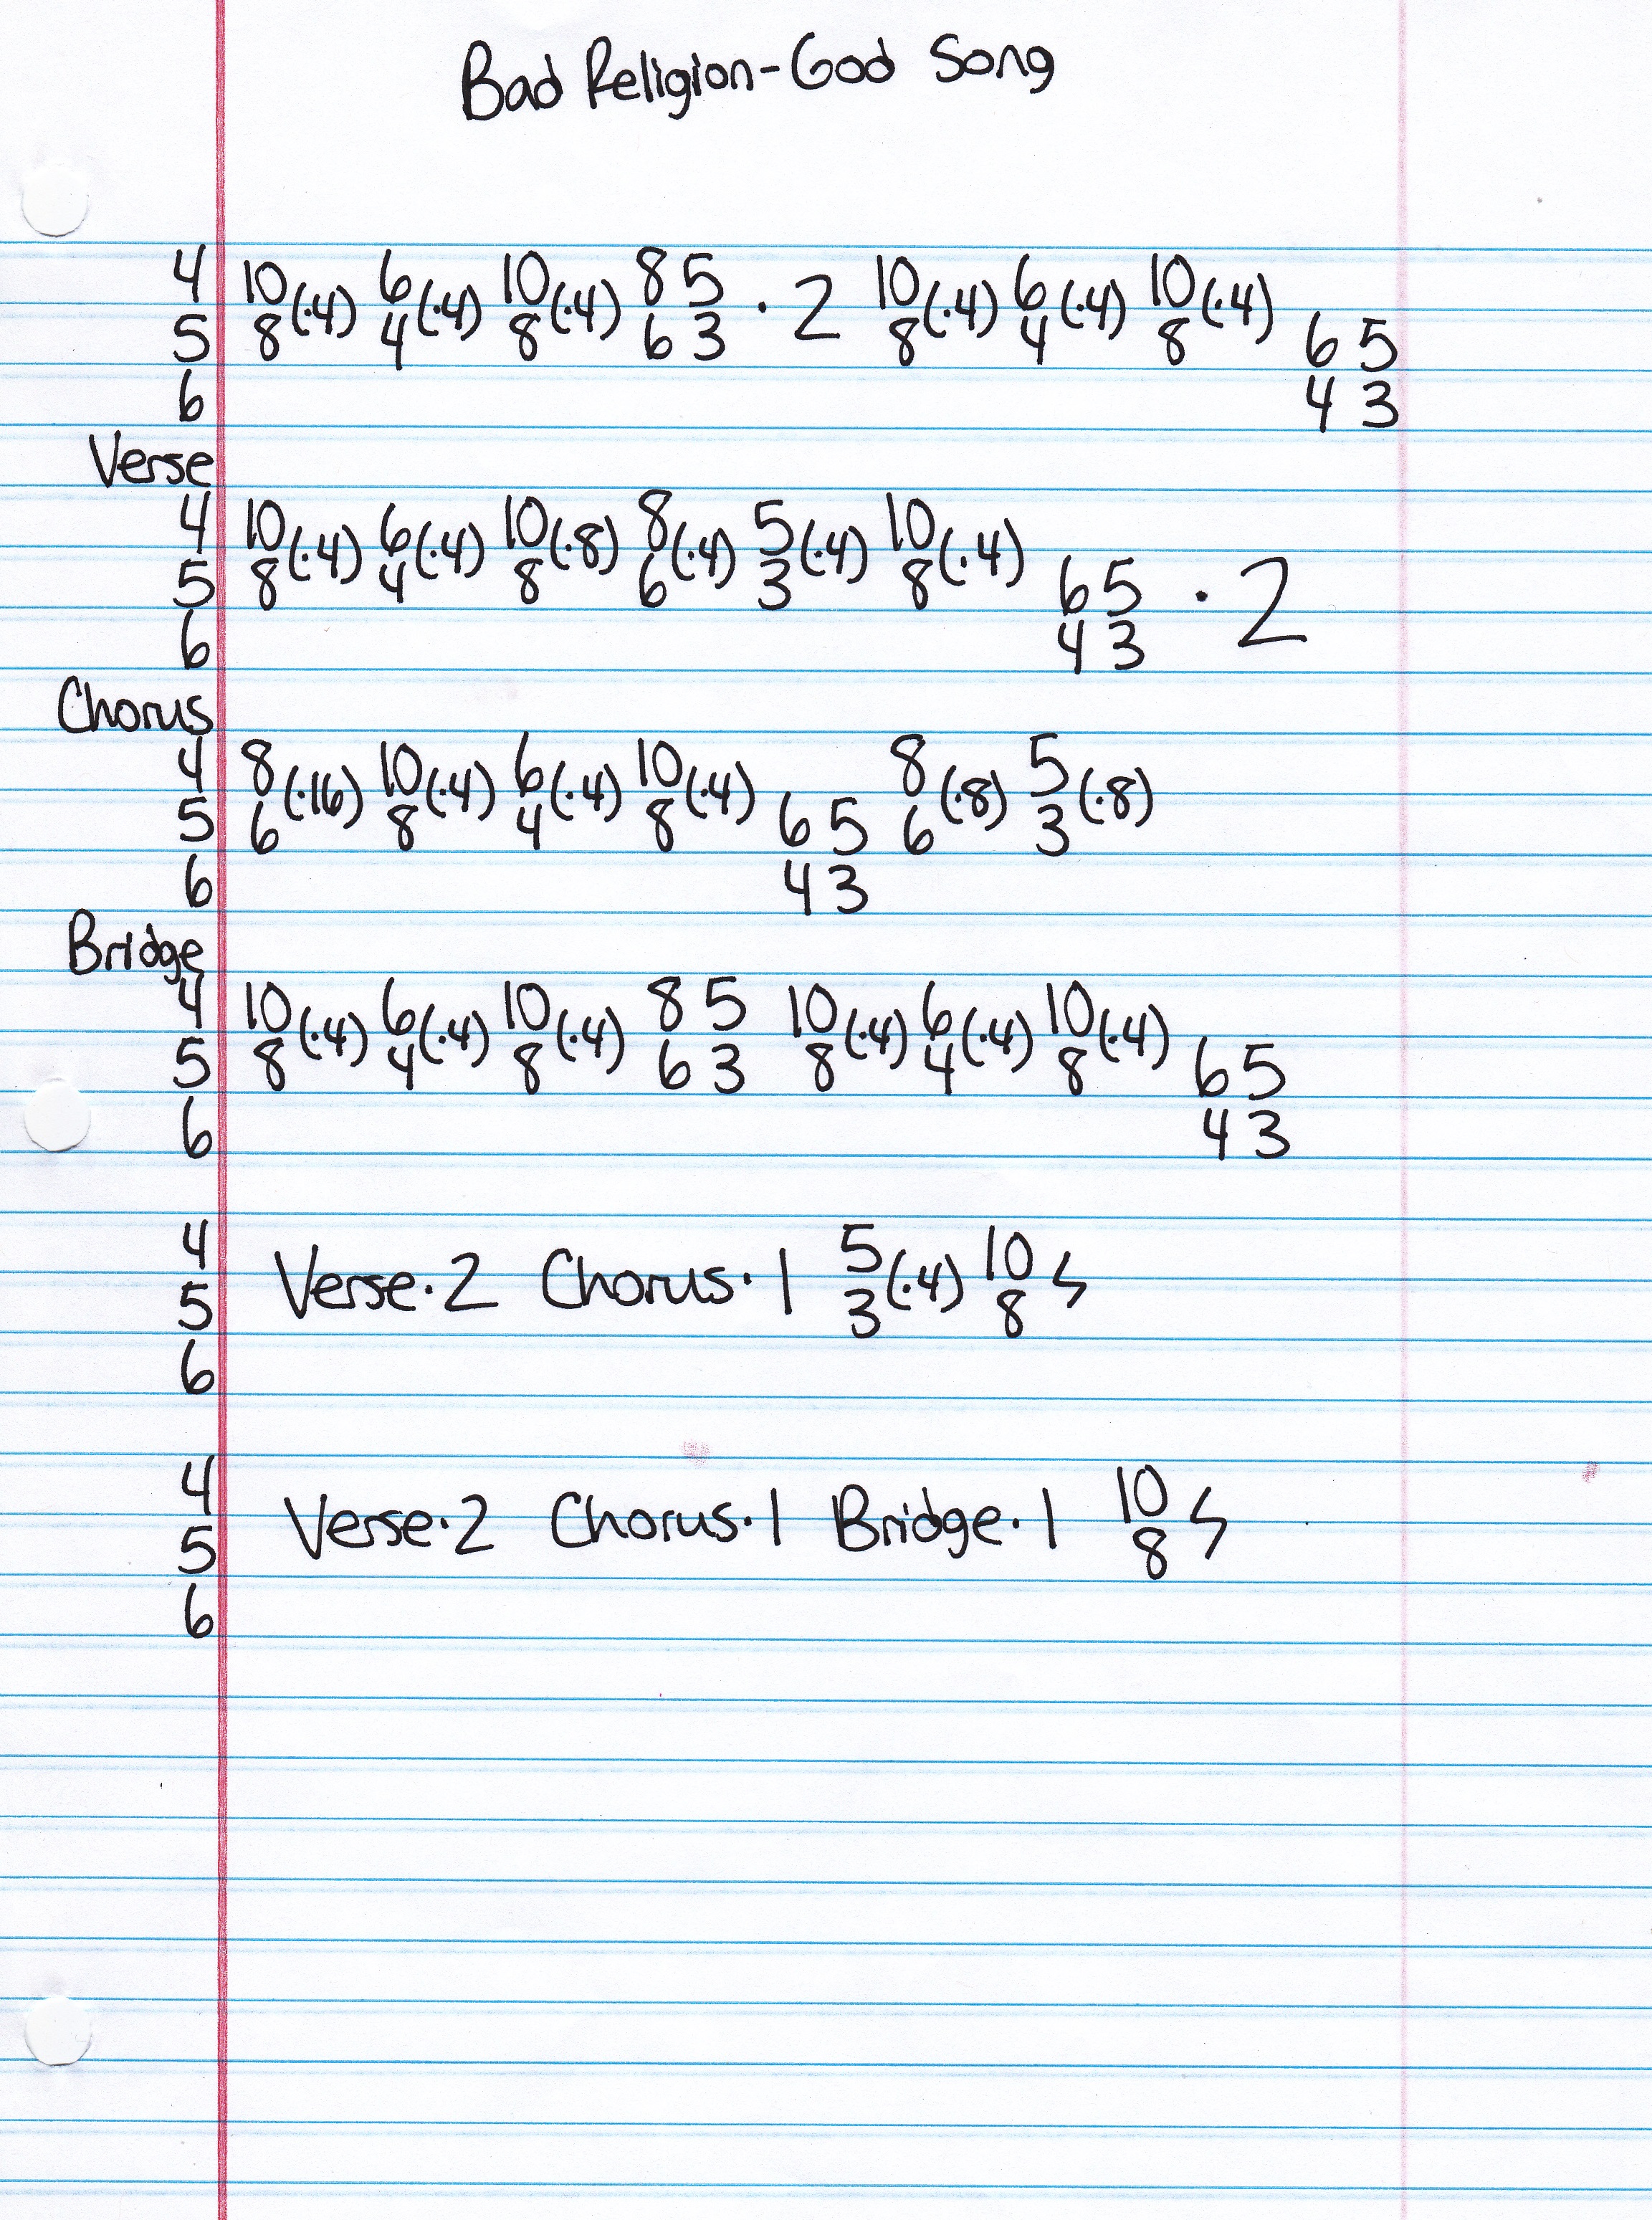 Bad Religion-God Song
4 10(·4) 6(·4) 10(·4) 8 5 · 2 10(·4) 6(·4) 10(·4)
5 8 4 8 6 3 8 4 8 6 5
6 4 3
Verse
4 10(·4) 6(·4) 10(·8) 8(·4) 5(·4) 10(·4)
5 8 4 8 6 3 8 6 5 · 2
6 4 3
Chorus
4 8(·16) 10(·4) 6(·4) 10(·4) 8(·8) 5(·8)
5 6 8 4 8 6 5 6 3
6 4 3
Bridge
4 10(·4) 6(·4) 10(·4) 8 5 10(·4) 6(·4) 10(·4)
5 8 4 8 6 3 8 4 8 6 5
6 4 3
4 Verse·2 Chorus·1 5(·4) 10
5 3 8
6
4 Verse·2 Chorus·1 Bridge·1 10
5 8
6